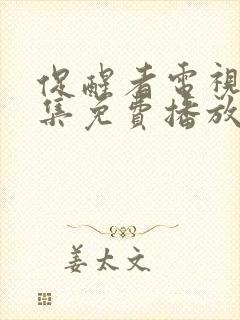 促醒者電視
集免費播放
姜太文